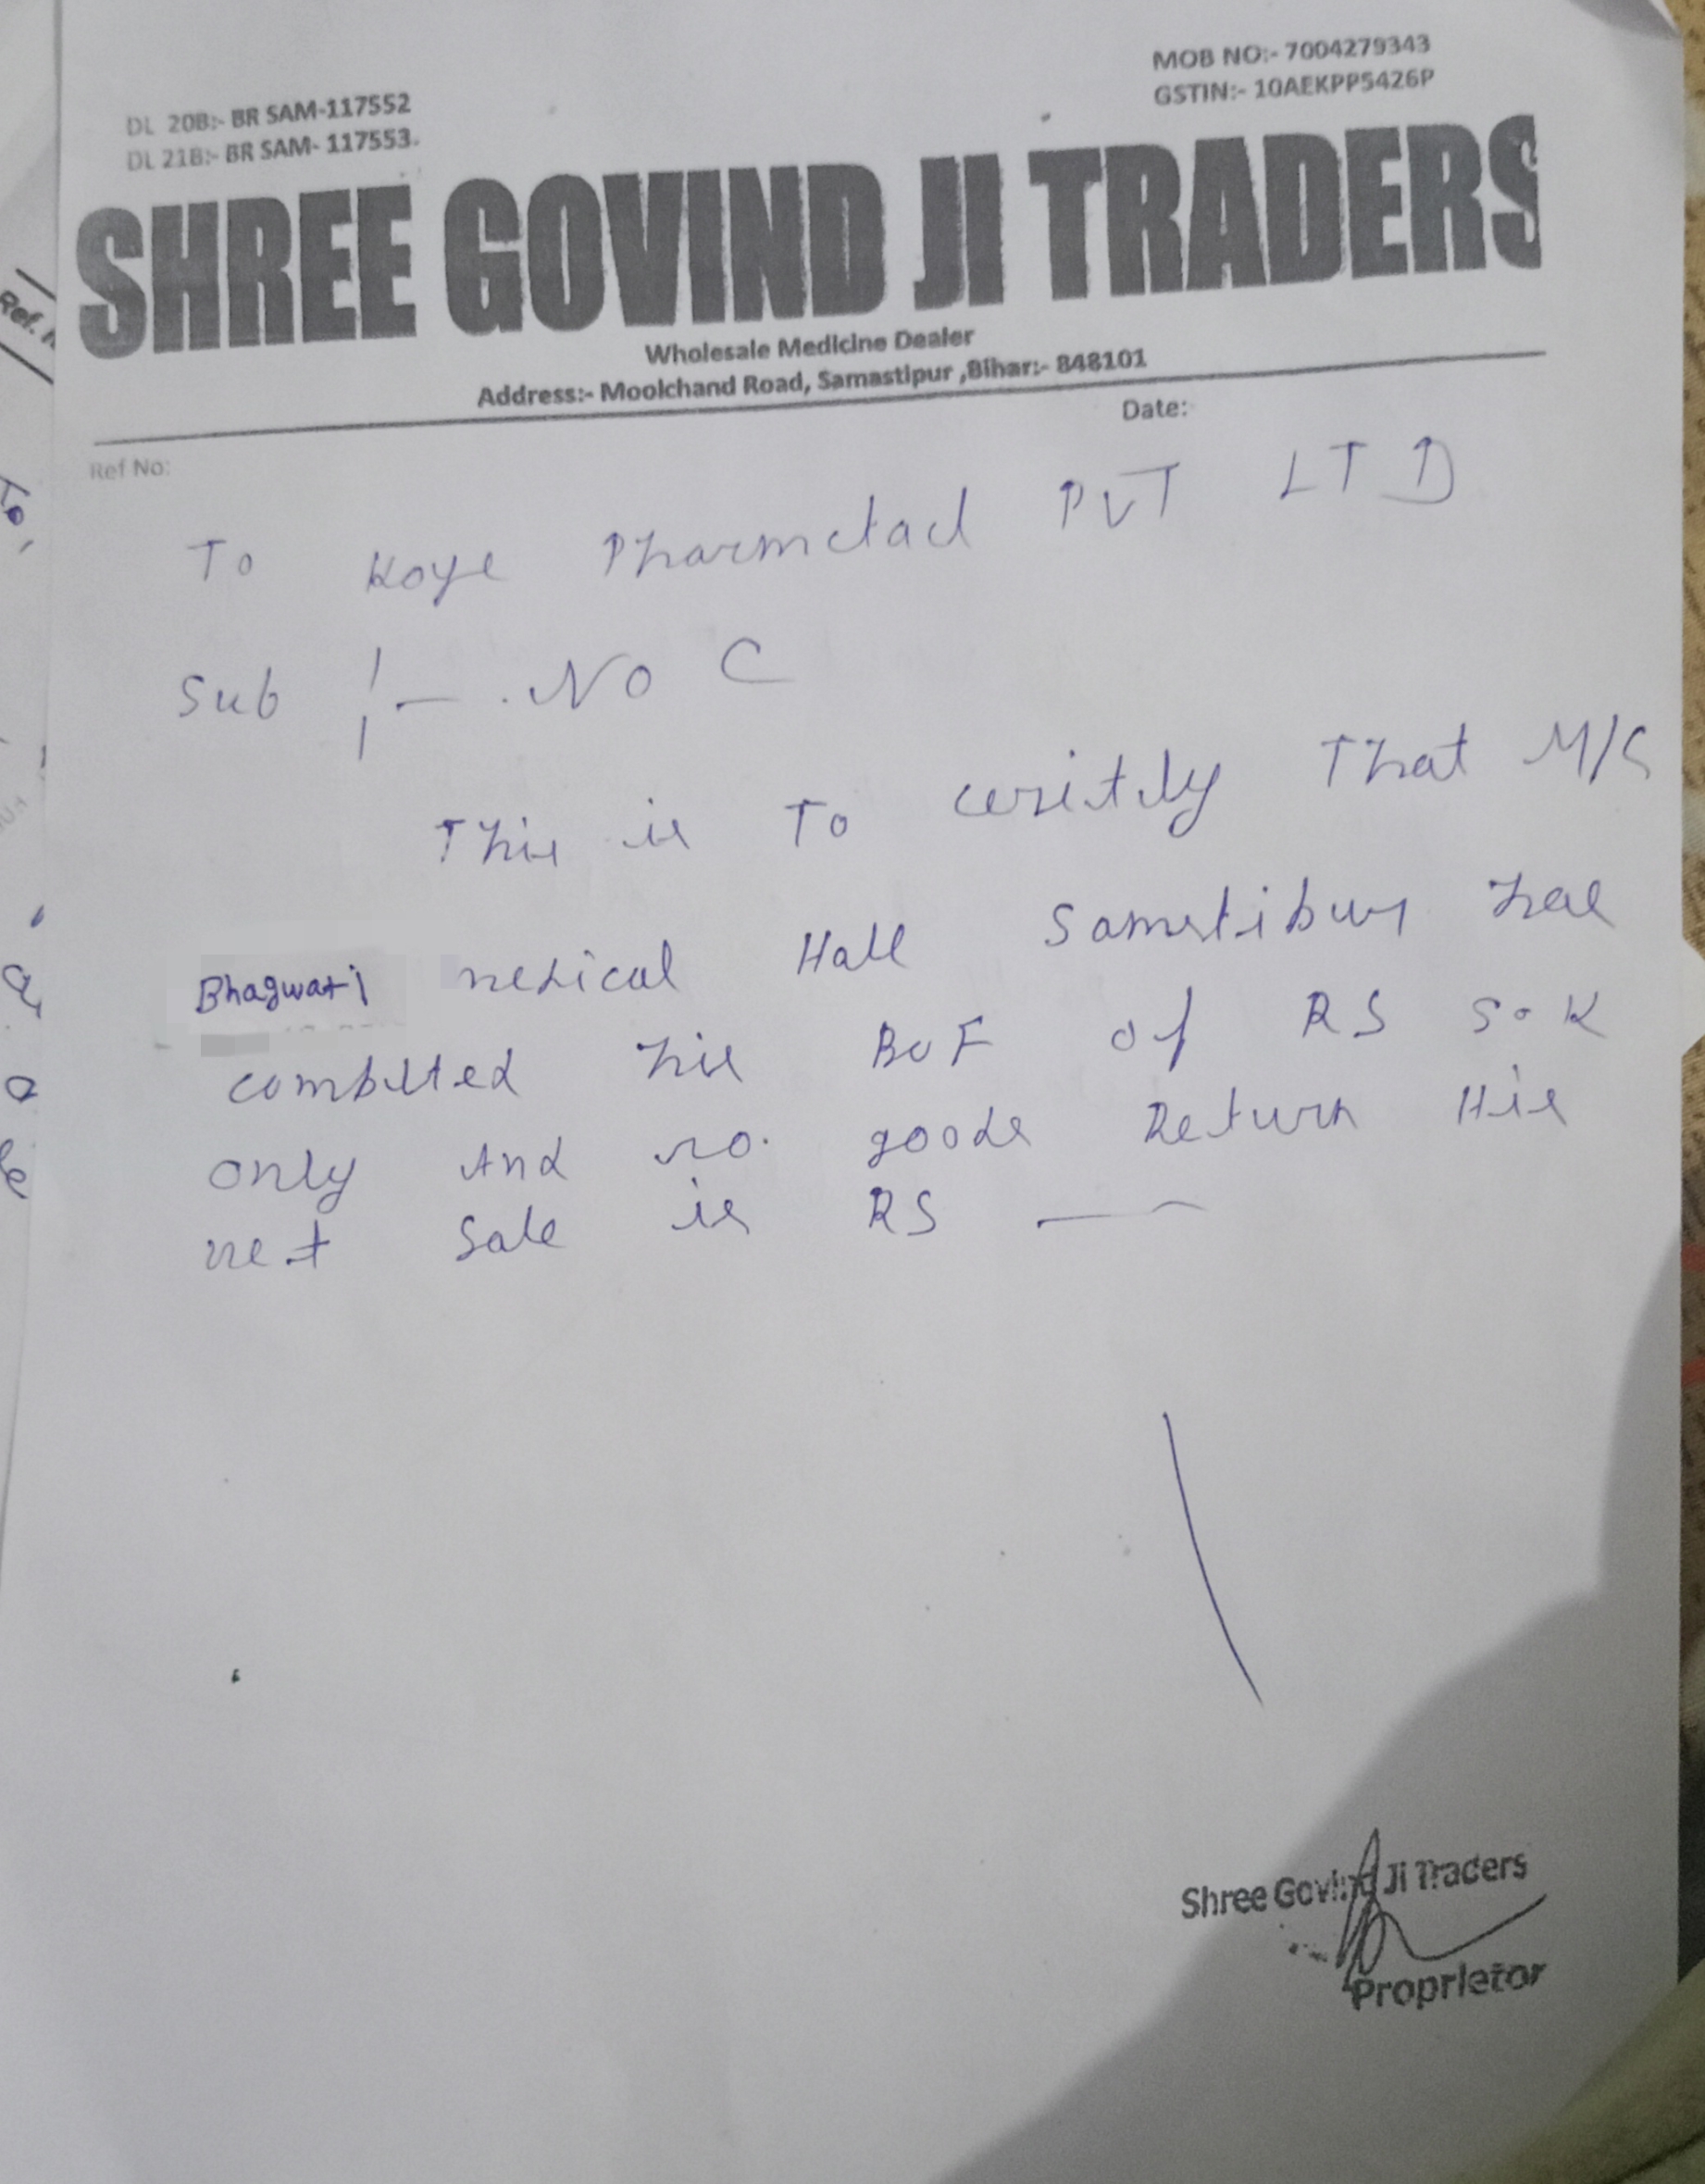 MOB NO:- 7004279343
GSTIN:- 10AEKPP5426P
DL 20B:- BR SAM-117552
DL 21B:- BR SAM- 117553.
SHREE GOVIND JI TRADERS
Wholesale Medicine Dealer
Address:- Moolchand Road, Samastipur ,Bihar:- 848101
Date:
Ref No:
To Koye Pharmctacl PVT LTD
Sub :- . NO C
This is To ceritfy That M/S
Bhagwati medical Hall Samstibur has
combleted his BOF of RS 50K
only And no. goods Return His
net Sale is RS —
Shree Govind Ji Traders
Proprietor
Ref.
To,